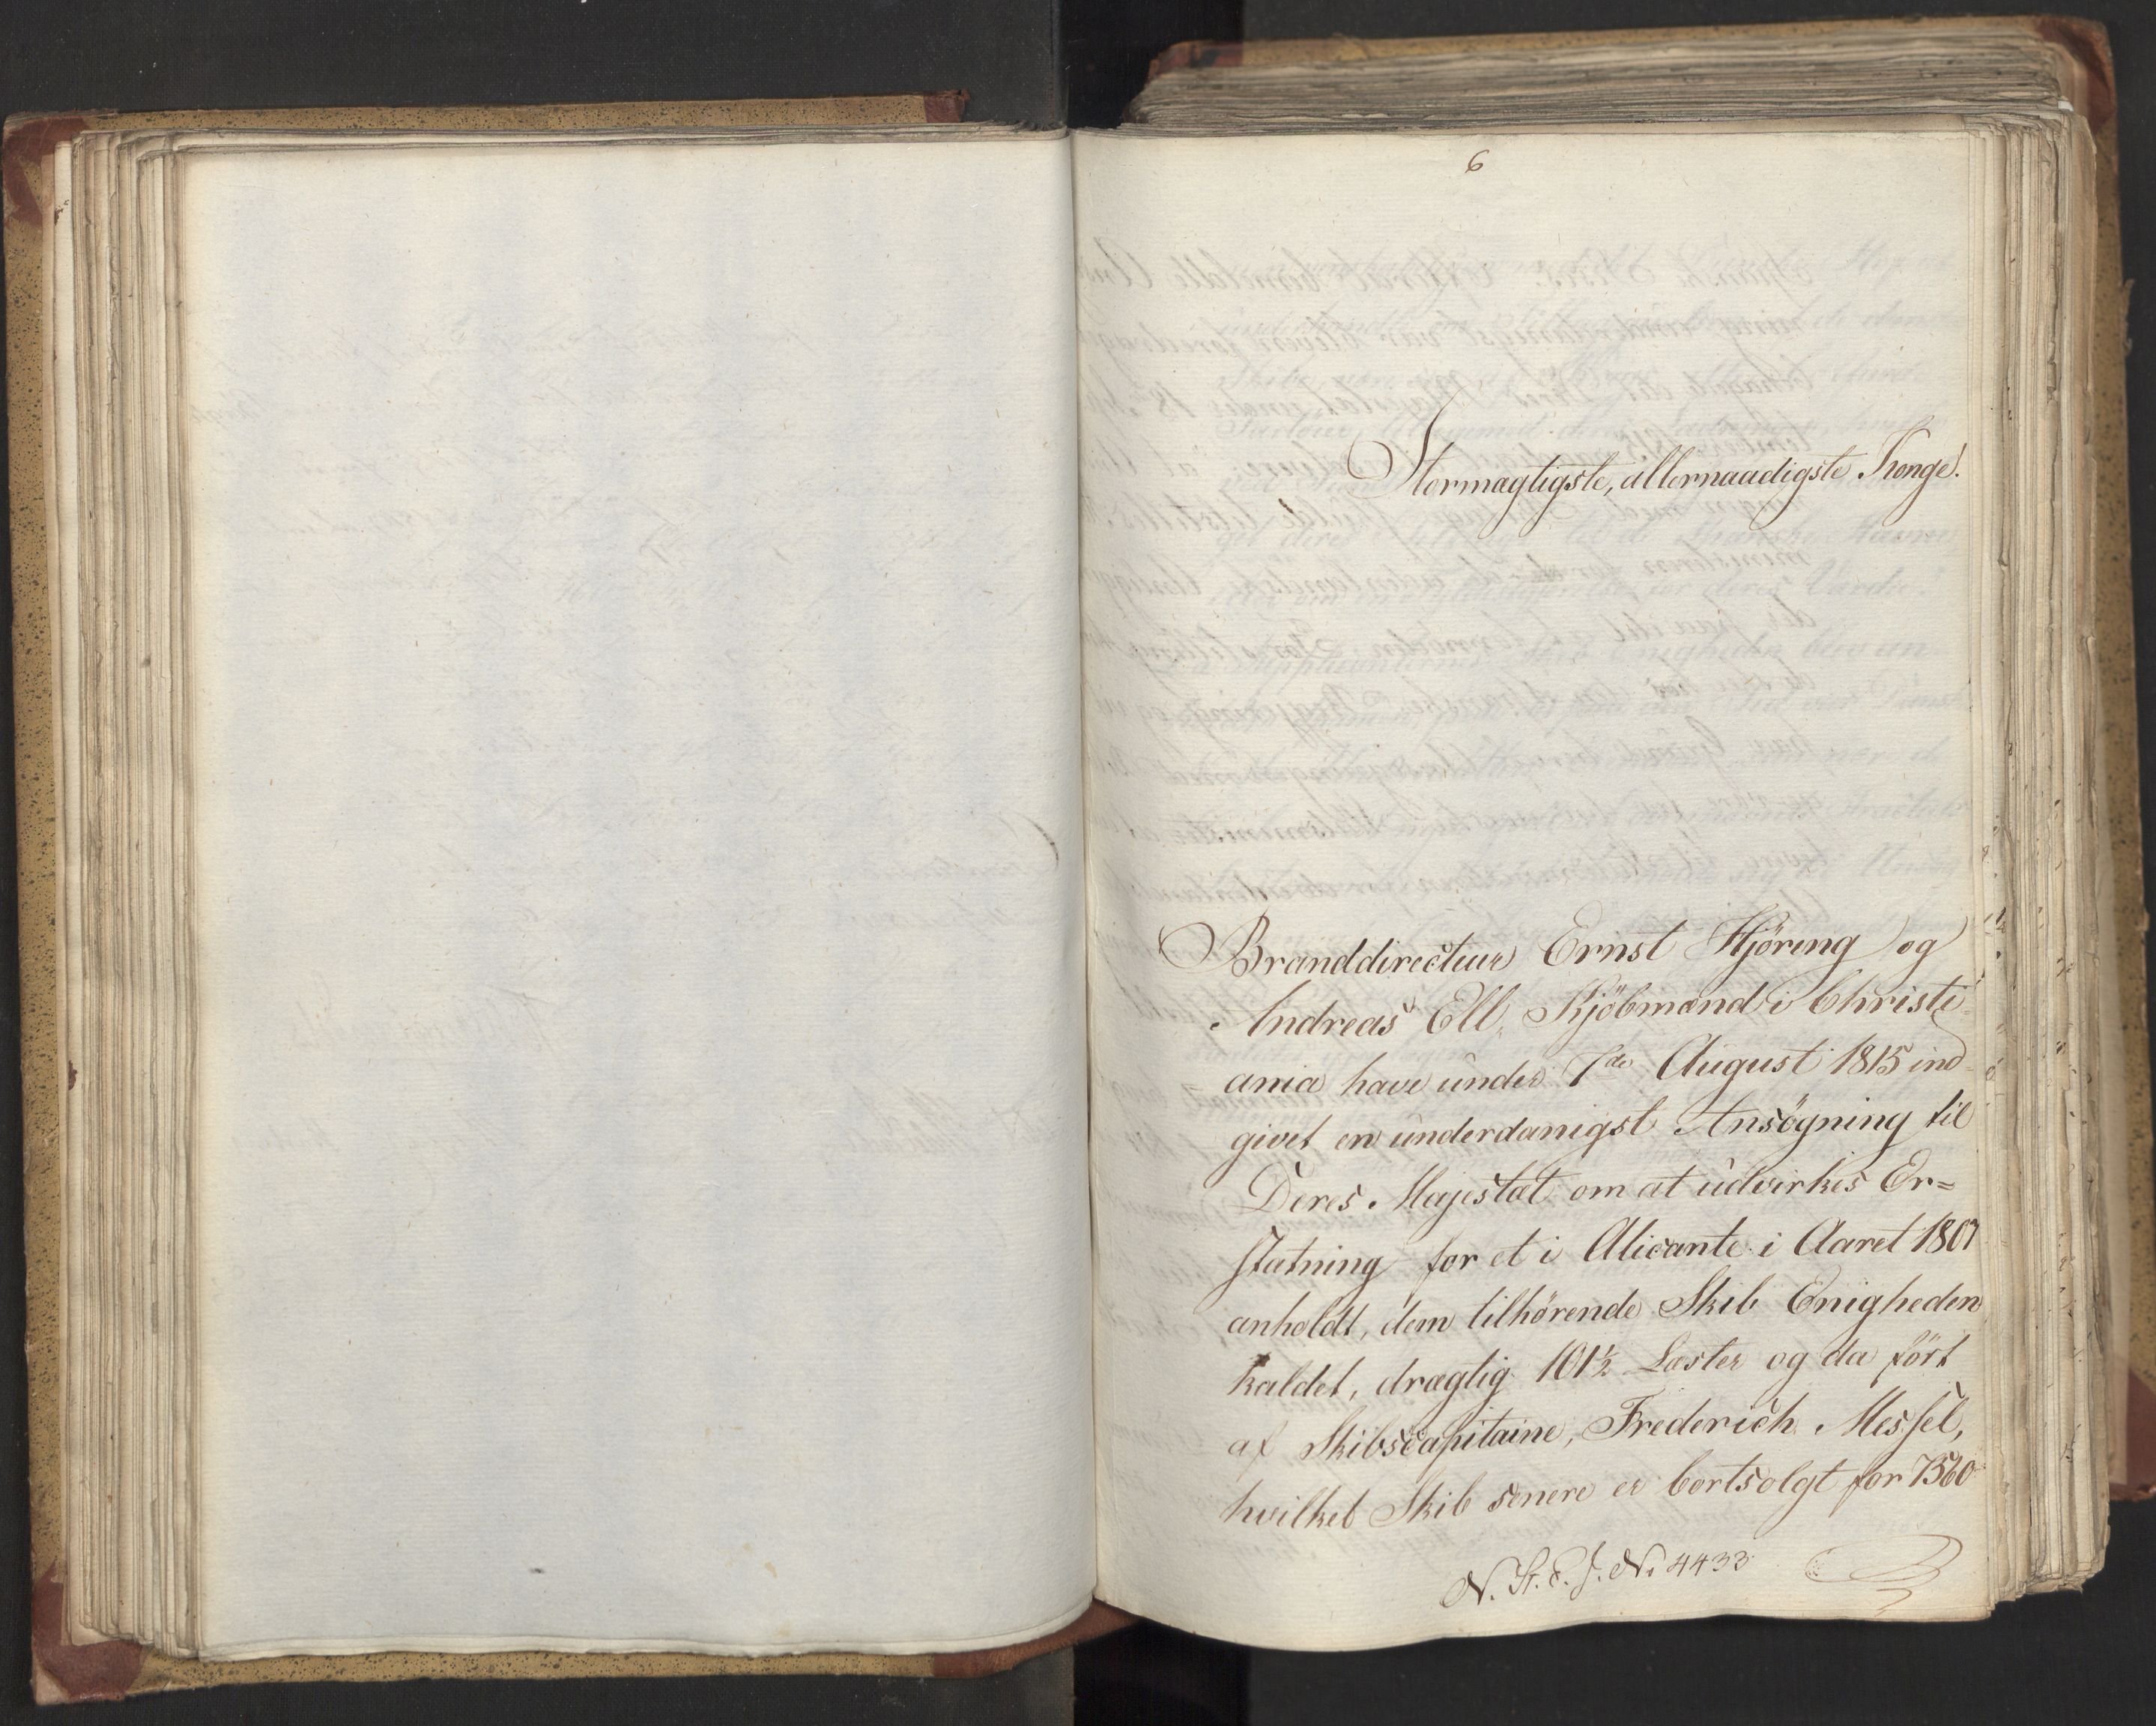 6
Stormægtigste, allernaadigste Konge!
Branddirecteur Ernst Hjöring og
Andreas Ell, Kjöbmand i Christi-
ania have under 7de August 1815 ind-
givet en underdanigst Ansögning til
Deres Majestæt om at udvirkes Er=
statning for et i Alicante i Aaret 1807
anholdt, dem tilhörende Skib Enigheden
kaldet, drægtig 101½ Læster og da fört
af Skibscapitaine, Frederich Messel,
hvilket Skib senere er bortsolgt for 7560
N. St. E. J. No 4433